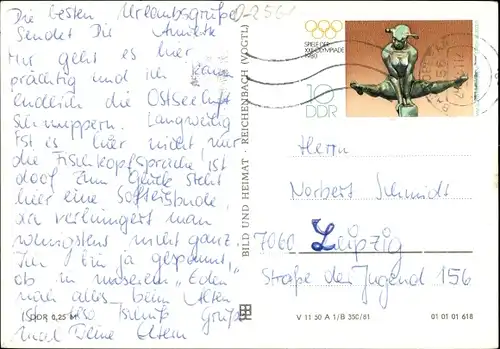 Die besten Urlaubsgrüße
Sendet Dir Annette
Mir geht es hier
prächtig und ich kann
endlich die Ostseeluft
schnuppern. Langweilig
ist es hier nicht nur
die Fischkopfsprache ist
doof zum Glück steht
hier eine Softeisbude,
da verhungert man
wenigstens nicht ganz.
Ich bin ja gespannt,
ob in unserem „Eden"
noch alles beim Alten
ist also Tschüß Grüß
mal Deine Eltern
DDR 0,25 M
BILD UND HEIMAT · REICHENBACH (VOGTL)
SPIELE DER
XXII. OLYMPIADE
1980
10
DDR
Herrn
Norbert Schmidt
7060 Leipzig
Straße der Jugend 156
V 11 50 A 1/B 350/61
01 01 01 618